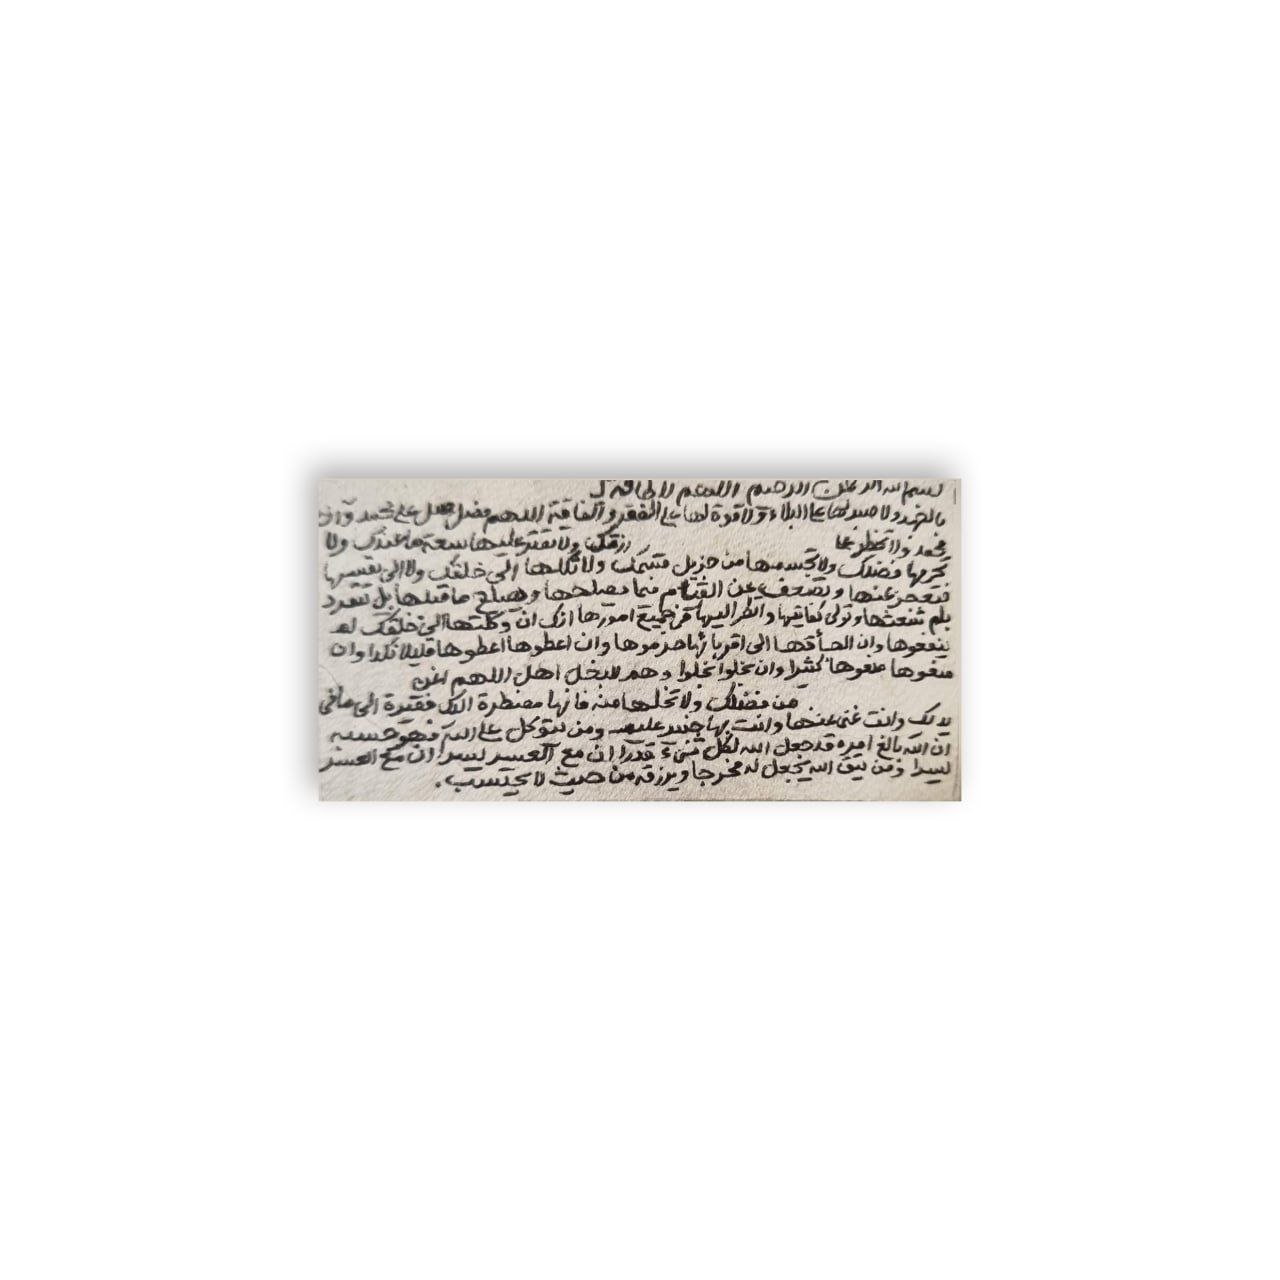 بسم الله الرحمن الرحيم اللهم لا طاقة ل
بالجهد ولا صبر لها على البلاء ولا قوة لها على الفقر والفاقة اللهم فصل صل على محمد وال
محمد ولا تحظر عما رزقك ولا تقتر عليها سعة ما عندك ولا
تحرمها فضلك ولا تحسمها من جزيل قسمك ولا تكلها الى خلقك ولا الى نفسها
فتعجز عنها وتضعف عن القيام فيما يصلحها ويصلح ما قبلها بل تنفرد
بلم شعثها وتولى كفايتها وانظر اليها في جميع امورها انك ان وكلتها الى خلقك لم
ينفعوها وان الجأتها الى اقربائها حرموها وان اعطوها اعطوها قليلا نكدا وان
منعوها منعوها كثيرا وان بخلوا بخلوا وهم للبخل اهل اللهم اغن
من فضلك ولا تخلها منه فانها مضطرة اليك فقيرة الى ما في
يديك وانت غني عنها وانت بها خبير عليم ومن يتوكل على الله فهو حسبه
ان الله بالغ امره قد جعل الله لكل شيء قدرا ان مع العسر يسرا ان مع العسر
يسرا ومن يتق الله يجعل له مخرجا ويرزقه من حيث لا يحتسب.